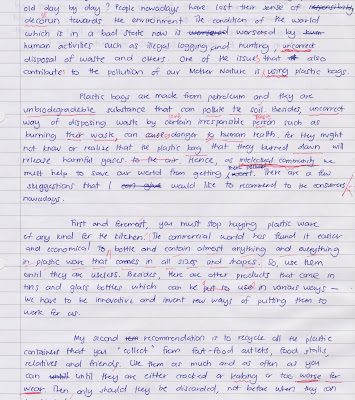 old day by day? People nowadays have lost their sense of responsibility
decorum towards the environment. The condition of the world
which is in a bad state now is worsened worsered by hum
human activities such as illegal logging and hunting, uncorrect
disposal of waste and others. One of the issues that also
contribute to the pollution of our Mother Nature is using plastic bags.
Plastic bags are made from petroleum and they are
unbiodegradable substance that can pollute the soil. Besides, uncorrect
way of disposing waste by certain irresponsible person such as
burning their waste, can cause danger to human health. For they might
not know or realize that the plastic bag that they burned down will
release harmful gases to the air. Hence, as intellectual community we
must help to save our world from getting worst. There are a few
suggestions that I can give would like to recommend to the consumers
nowadays.
First and foremost, you must stop buying plastic ware
of any kind for the kitchen. The commercial world has found it easier
and economical to bottle and contain almost anything and everything
in plastic ware that comes in all sizes and shapes. So, use them
until they are useless. Besides, there are other products that come in
tins and glass bottles which can be put to use in various ways –
we have to be innovative and invent new ways of putting them to
work for us.
My second recommendation is to recycle all the plastic
containers that you "collect" from fast-food outlets, food stalls,
relatives and friends. Use them as much and as often as you
can until until they are either cracked or leaking or too worse for
wear. Then only should they be discarded, not before when they can